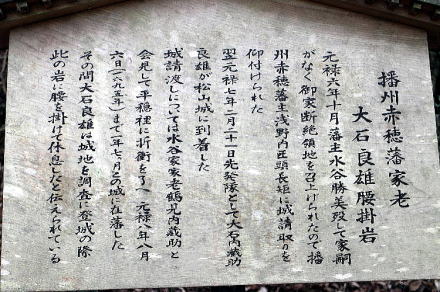 播州赤穂藩家老
大石良雄腰掛岩
元禄六年十月藩主水谷勝美歿して家嗣
がなく御家断絶領地を召上げられたので播
州赤穂藩主浅野内匠頭長矩に城請取りを
仰付けられた
翌元禄七年二月二十一日先発隊として大石内蔵助
良雄が松山城に到着した
城請渡しについては水谷家家老鶴見内蔵助と
会見して平穏裡に折衝を了へ元禄八年八月
六日(一六九五年)まで一年七ヶ月この城に在藩した
その間大石良雄は城地を調査し登城の際
此の岩に腰を掛けて休息したと伝えられている